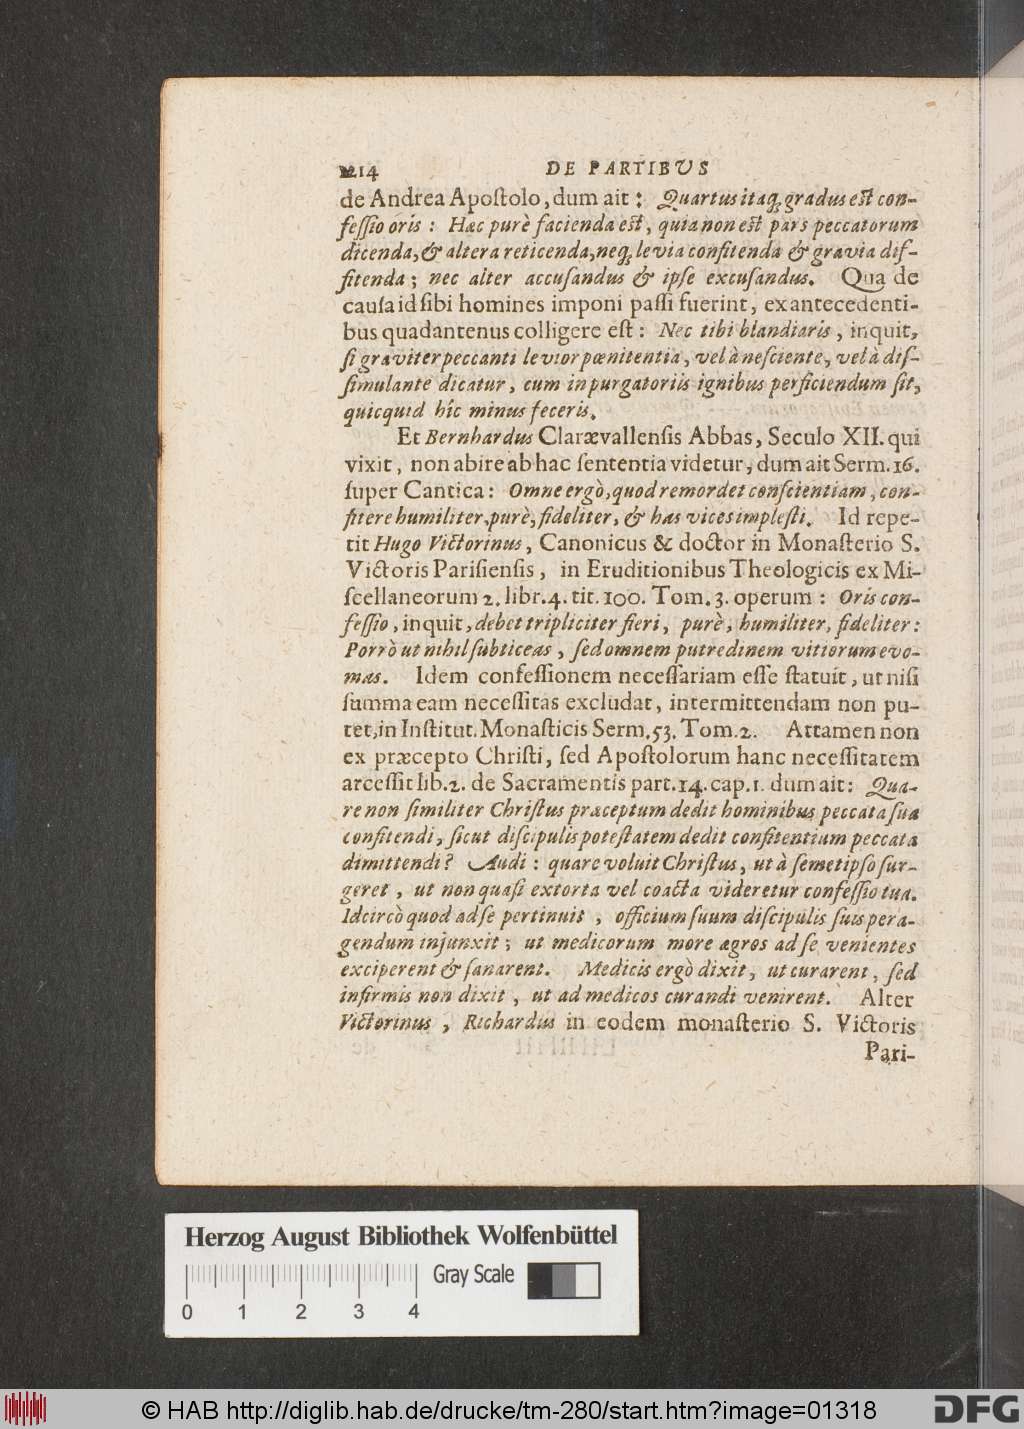 1214 DE PARTIBVS
de Andrea Apoſtolo, dum ait: Quartus itaq; gradus eſt con-
feſſio oris: Hæc purè facienda eſt, quia non eſt pars peccatorum
dicenda, & altera reticenda, neq; levia confitenda & gravia dif-
fitenda; nec alter accuſandus & ipſe excuſandus. Qua de
cauſa id ſibi homines imponi paſſi fuerint, ex antecedenti-
bus quadantenus colligere eſt: Nec tibi blandiaris, inquit,
ſi graviter peccanti levior pœnitentia, vel à neſciente, vel à diſ-
ſimulante dicatur, cum in purgatoriis ignibus perficiendum ſit,
quicquid hîc minus feceris.
Et Bernhardus Claræ vallenſis Abbas, Seculo XII. qui
vixit, non abire ab hac ſententia videtur, dum ait Serm. 16.
ſuper Cantica: Omne ergò, quod remordet conſcientiam, con-
fitere humiliter, purè, fideliter, & has vices impleſti. Id repe-
tit Hugo Victorinus, Canonicus & doctor in Monaſterio S.
Victoris Pariſienſis, in Eruditionibus Theologicis ex Mi-
ſcellaneorum 2. libr. 4. tit. 100. Tom. 3. operum: Oris con-
feſſio, inquit, debet tripliciter fieri, purè, humiliter, fideliter:
Porrò ut nihil ſubticeas, ſed omnem putredinem vitiorum evo-
mas. Idem confeſſionem neceſſariam eſſe ſtatuit, ut niſi
ſumma eam neceſſitas excludat, intermittendam non pu-
tet, in Inſtitut. Monaſticis Serm. 53. Tom. 2. Attamen non
ex præcepto Chriſti, ſed Apoſtolorum hanc neceſſitatem
arceſſit lib. 2. de Sacramentis part. 14. cap. 1. dum ait: Qua-
re non ſimiliter Chriſtus præceptum dedit hominibus peccata ſua
confitendi, ſicut diſcipulis poteſtatem dedit confitentium peccata
dimittendi? Audi: quare voluit Chriſtus, ut à ſemetipſo ſur-
geret, ut non quaſi extorta vel coacta videretur confeſſio tua.
Idcircò quod ad ſe pertinuit, officium ſuum diſcipulis ſuis pera-
gendum injunxit; ut medicorum more ægros ad ſe venientes
exciperent & ſanarent. Medicis ergò dixit, ut curarent, ſed
infirmis non dixit, ut ad medicos curandi venirent. Alter
Victorinus, Richardus in eodem monaſterio S. Victoris
Pari-
Herzog August Bibliothek Wolfenbüttel
Gray Scale
0 1 2 3 4
© HAB http://diglib.hab.de/drucke/tm-280/start.htm?image=01318
DFG